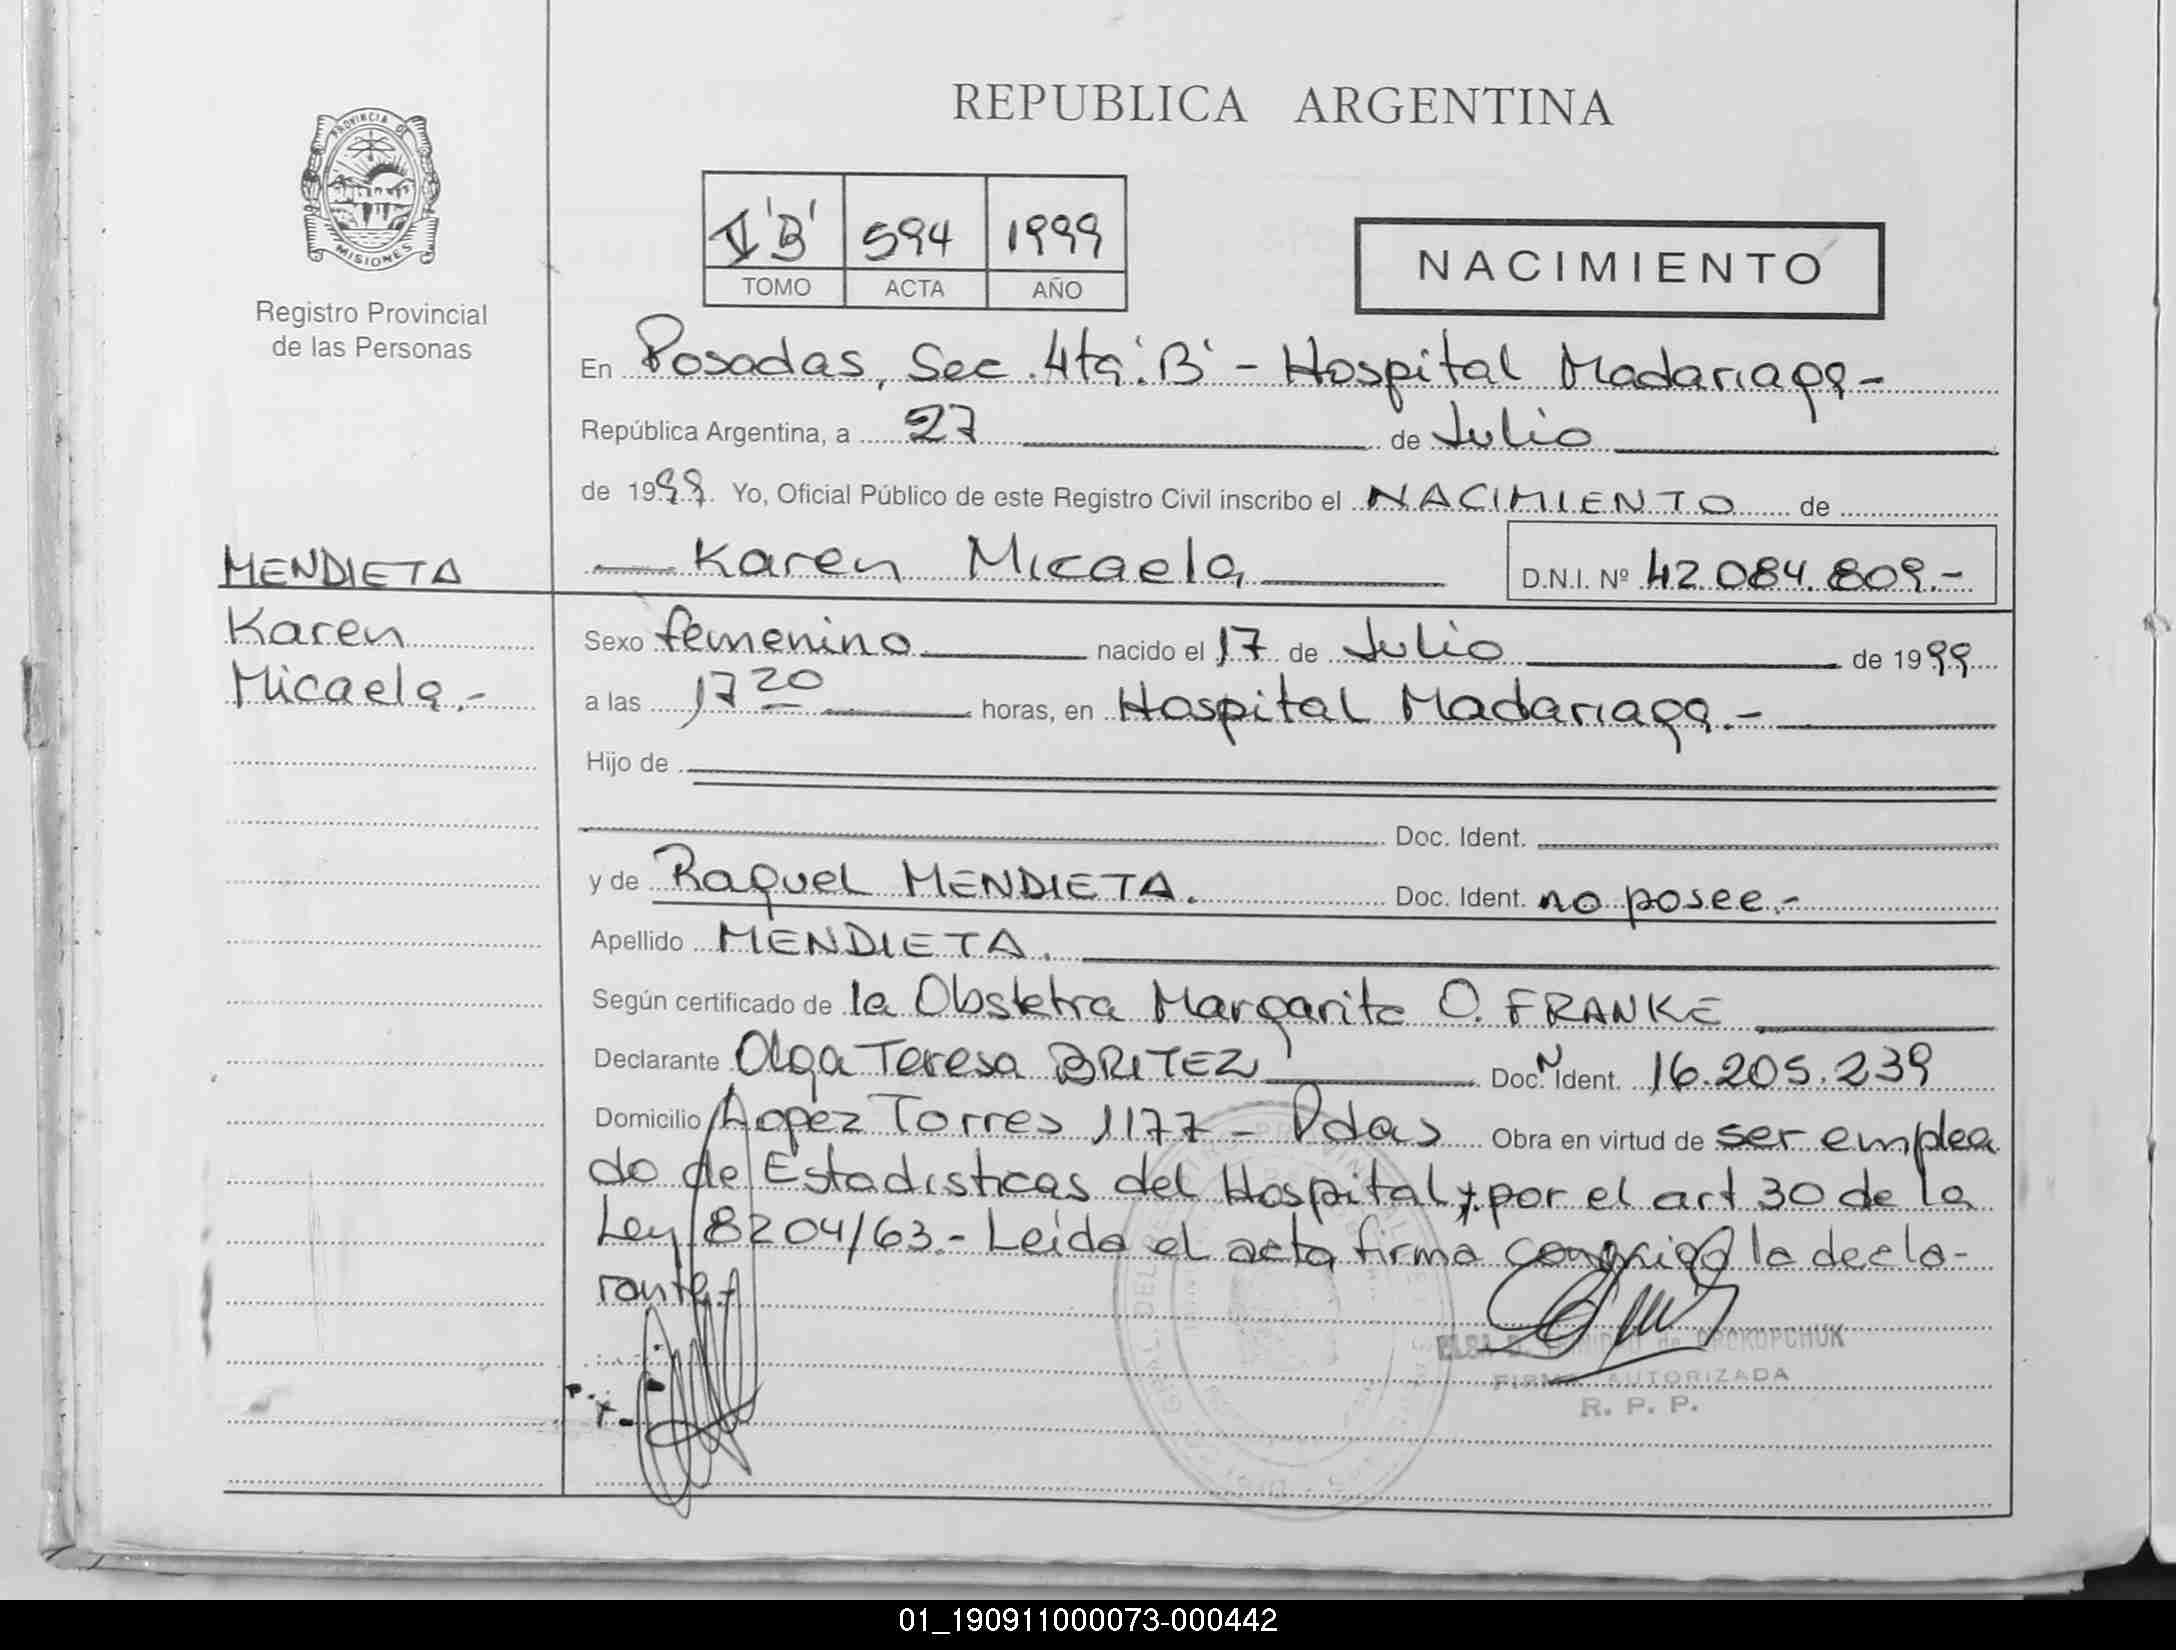 REPUBLICA ARGENTINA
PROVINCIA DE
MISIONES
Registro Provincial
de las Personas
'B' 594 1999
TOMO ACTA AÑO
NACIMIENTO
En Posadas, Sec. 4ta 'B' - Hospital Madariaga -
República Argentina, a 27 de Julio
de 1999. Yo, Oficial Público de este Registro Civil inscribo el NACIMIENTO de
MENDIETA
Karen
Micaela.-
Karen Micaela D.N.I. Nº 42.084.809.-
Sexo femenino nacido el 17 de Julio de 1999
a las 17 20 horas, en Hospital Madariaga.-
Hijo de
Doc. Ident.
y de Raquel MENDIETA. Doc. Ident. no posee.-
Apellido MENDIETA.
Según certificado de la Obstetra Margarita O. FRANKE
Declarante Olga Teresa BRITEZ Doc. Ident. 16.205.239
Domicilio Lopez Torres 1177 - Pdas Obra en virtud de ser emplea
do de Estadisticas del Hospital y por el art 30 de la
Ley 8204/63.- Leida el acta firma conmigo la decla-
rante.-
ELSA de
FIRMA AUTORIZADA
R. P. P.
01_190911000073-000442